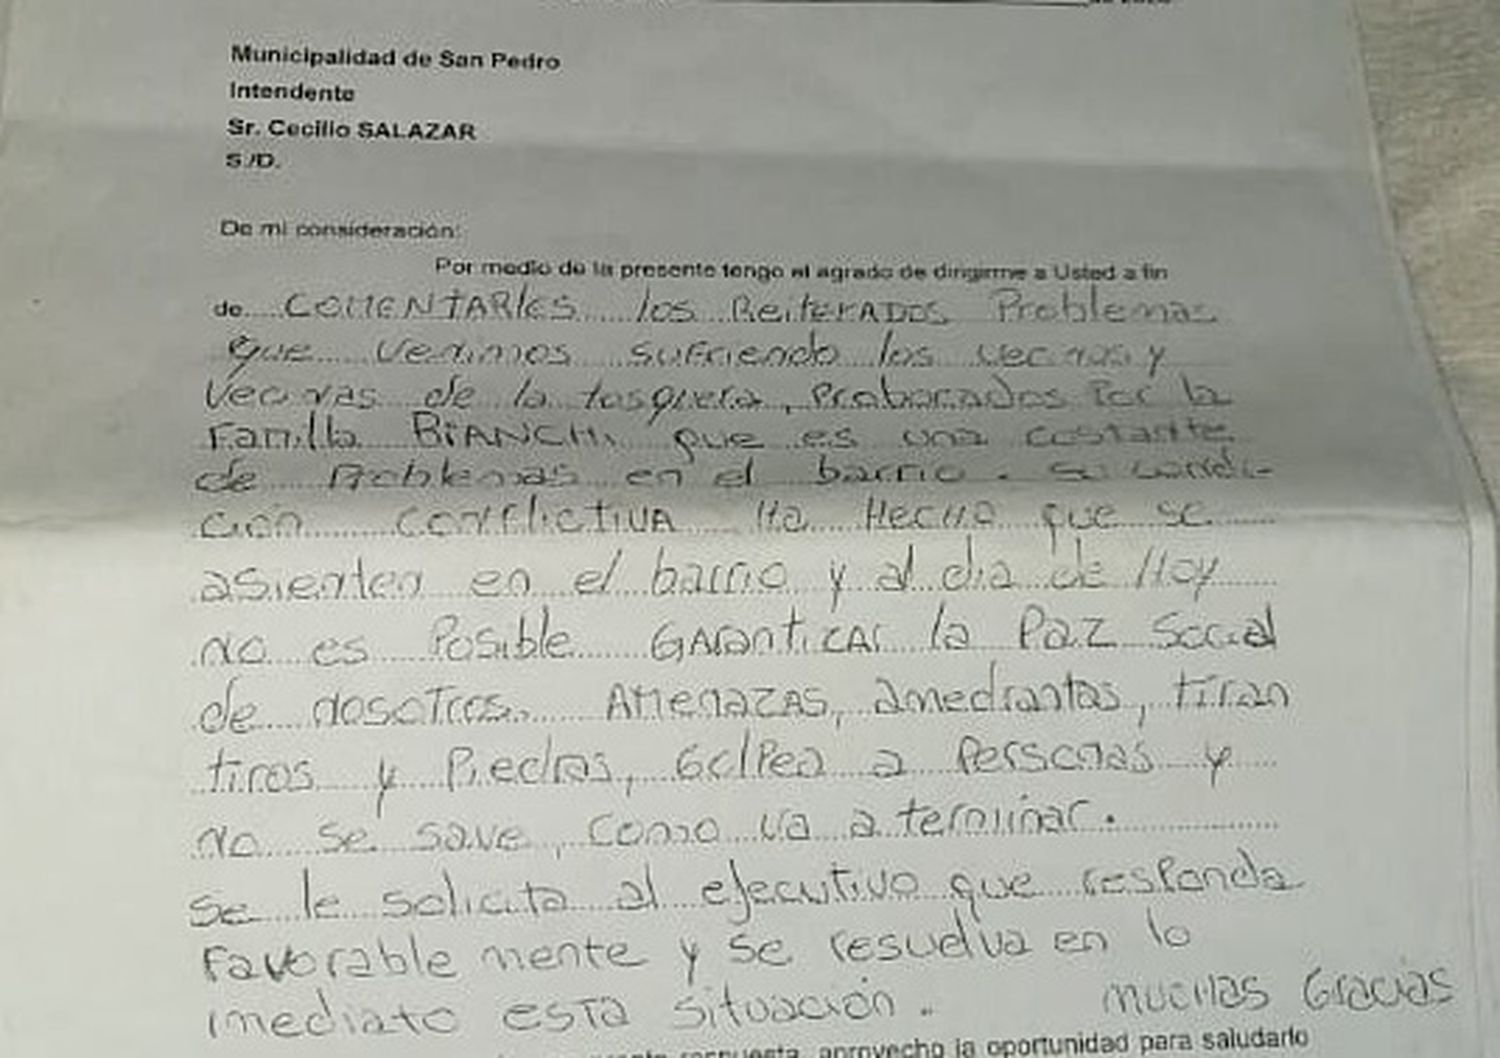 Municipalidad de San Pedro
Intendente
Sr. Cecilio SALAZAR
S./D.
De mi consideración:
Por medio de la presente tengo el agrado de dirigirme a Usted a fin
de COMENTARles los ReiteRADOS Problemas
que venimos sufriendo los vecinos y
Vecinas de la tosquera, Probocados Por la
Familia BiANCHi que es una costante
de Problemas en el barrio. su condi-
ción conflictiVA Ha HecHo que se
asienten en el barrio y al dia de Hoy
no es Posible GARantiCAr la Paz Social
de nosotros. AMenaZAS, amedrantas, tiran
tiros y Piedras, GolPea a Personas y
no se save, como va a terminar.
Se le solicita al ejecutivo que responda
Favorable mente y se resuelva en lo
imediato esta situación. MucHas Gracias
respuesta, aprovecho la oportunidad para saludarlo